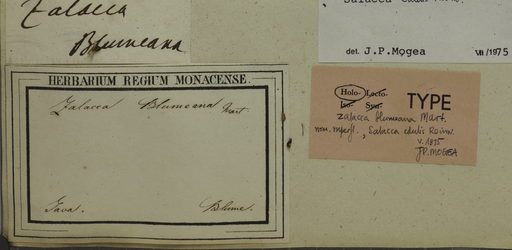 Zalacca
Blumeana
det. J.P.Mogea VII/1975
HERBARIUM REGIUM MONACENSE.
Zalacca Blumeana Mart
Java. Blume.
Holo- Lecto-
Iso- Syn-
TYPE
Zalacca blumeana Mart.
nom. superfl., Salacca edulis Reinw.
V. 1975
JP. MOGEA